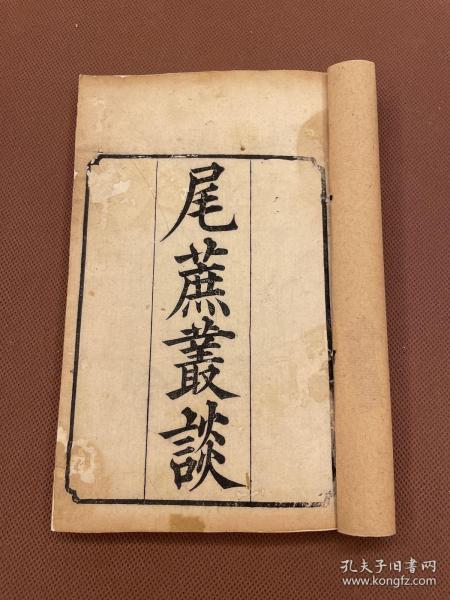 尾蔗叢談
孔夫子旧书网
www.kongfz.com